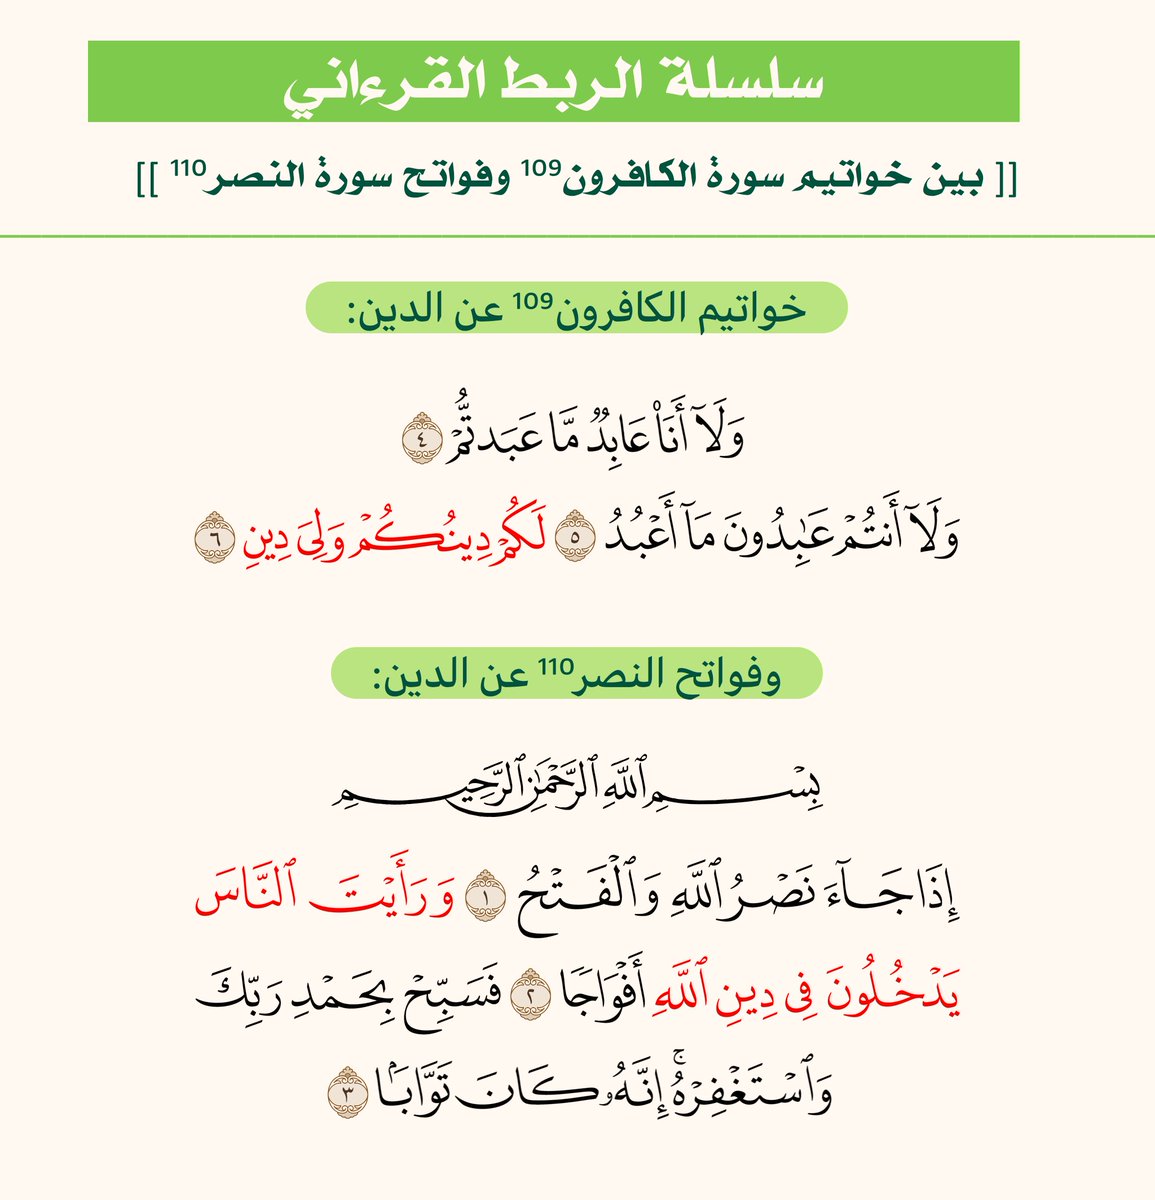 سلسلة الربط القرءاني
[[ بين خواتيم سورة الكافرون109 وفواتح سورة النصر110 ]]
خواتيم الكافرون109 عن الدين:
وَلَآ أَنَا۠ عَابِدٌ مَّا عَبَدتُّمْ ٤
وَلَآ أَنتُمْ عَٰبِدُونَ مَآ أَعْبُدُ ٥ لَكُمْ دِينُكُمْ وَلِىَ دِينِ ٦
وفواتح النصر110 عن الدين:
بِسْمِ ٱللَّهِ ٱلرَّحْمَٰنِ ٱلرَّحِيمِ
إِذَا جَآءَ نَصْرُ ٱللَّهِ وَٱلْفَتْحُ ١ وَرَأَيْتَ ٱلنَّاسَ
يَدْخُلُونَ فِى دِينِ ٱللَّهِ أَفْوَاجًا ٢ فَسَبِّحْ بِحَمْدِ رَبِّكَ
وَٱسْتَغْفِرْهُ ۚ إِنَّهُۥ كَانَ تَوَّابًۢا ٣